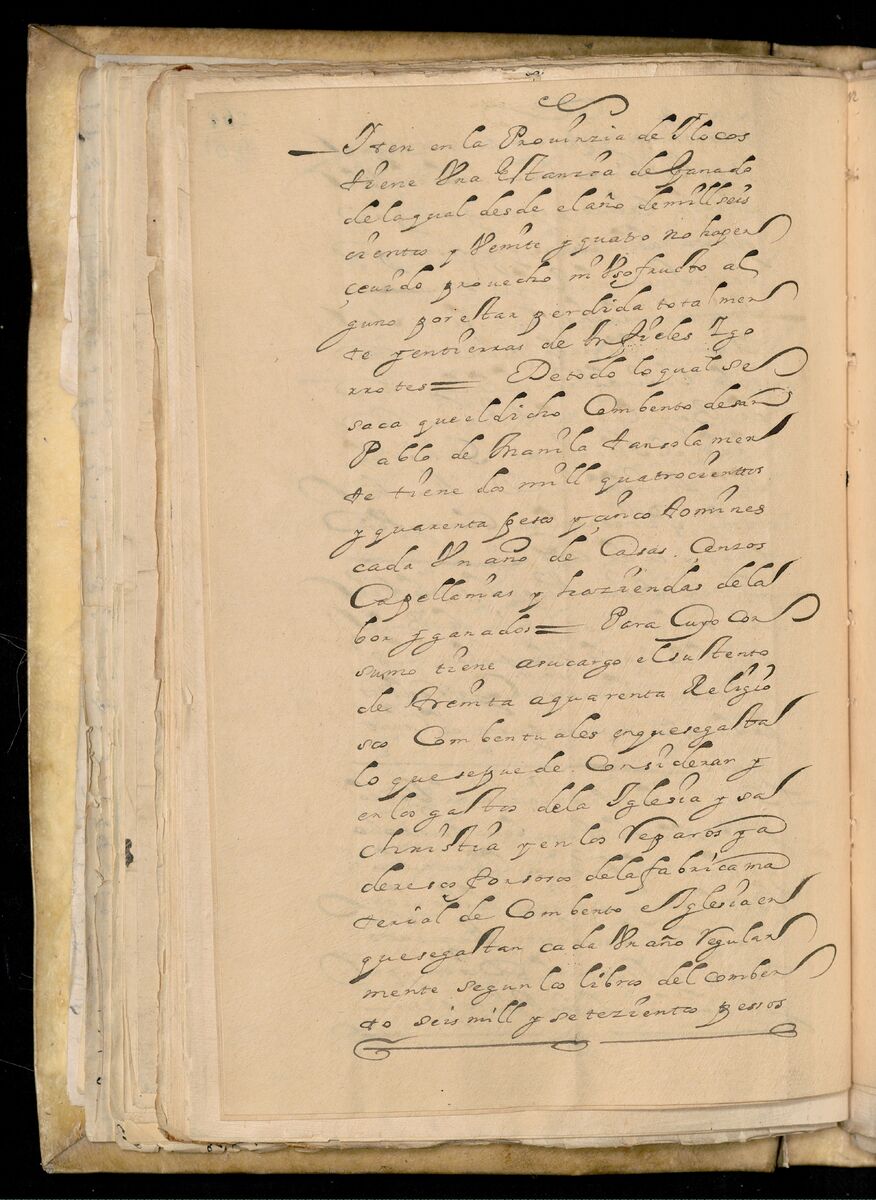 Iten en la Prouinzia de Ylocos
tiene Vna Estanzia de Ganado
de la qual desde el año de mill seis
cientos y Veinte y quatro no ha per
çeuido prouecho ni Vsofructo al
guno por estar perdida totalmen
te y entierras de Infieles Ygo
rrotes= De todo lo qual se
saca que el dicho Combento de san
Pablo de Manila tan sola men
te tiene dos mill quatrocientos
y quarenta pesos y çinco tomines
cada Vn año de Casas. Cenzos
Capellanias y haziendas de la
bor y ganados= Para Cuyo con
sumo tiene asucargo el sustento
de treinta a quarenta Religio
sos Combentuales en que se gasta
lo que se puede. Considerar y
en los gastos de la Iglesia y sa
christia y en los reparos y a
deresos forsosos de la fabrica ma
terial de Combento e Iglesia en
que se gastan cada Vn año regular
mente segun los libros del comben
to seis mill y setezientos pessos